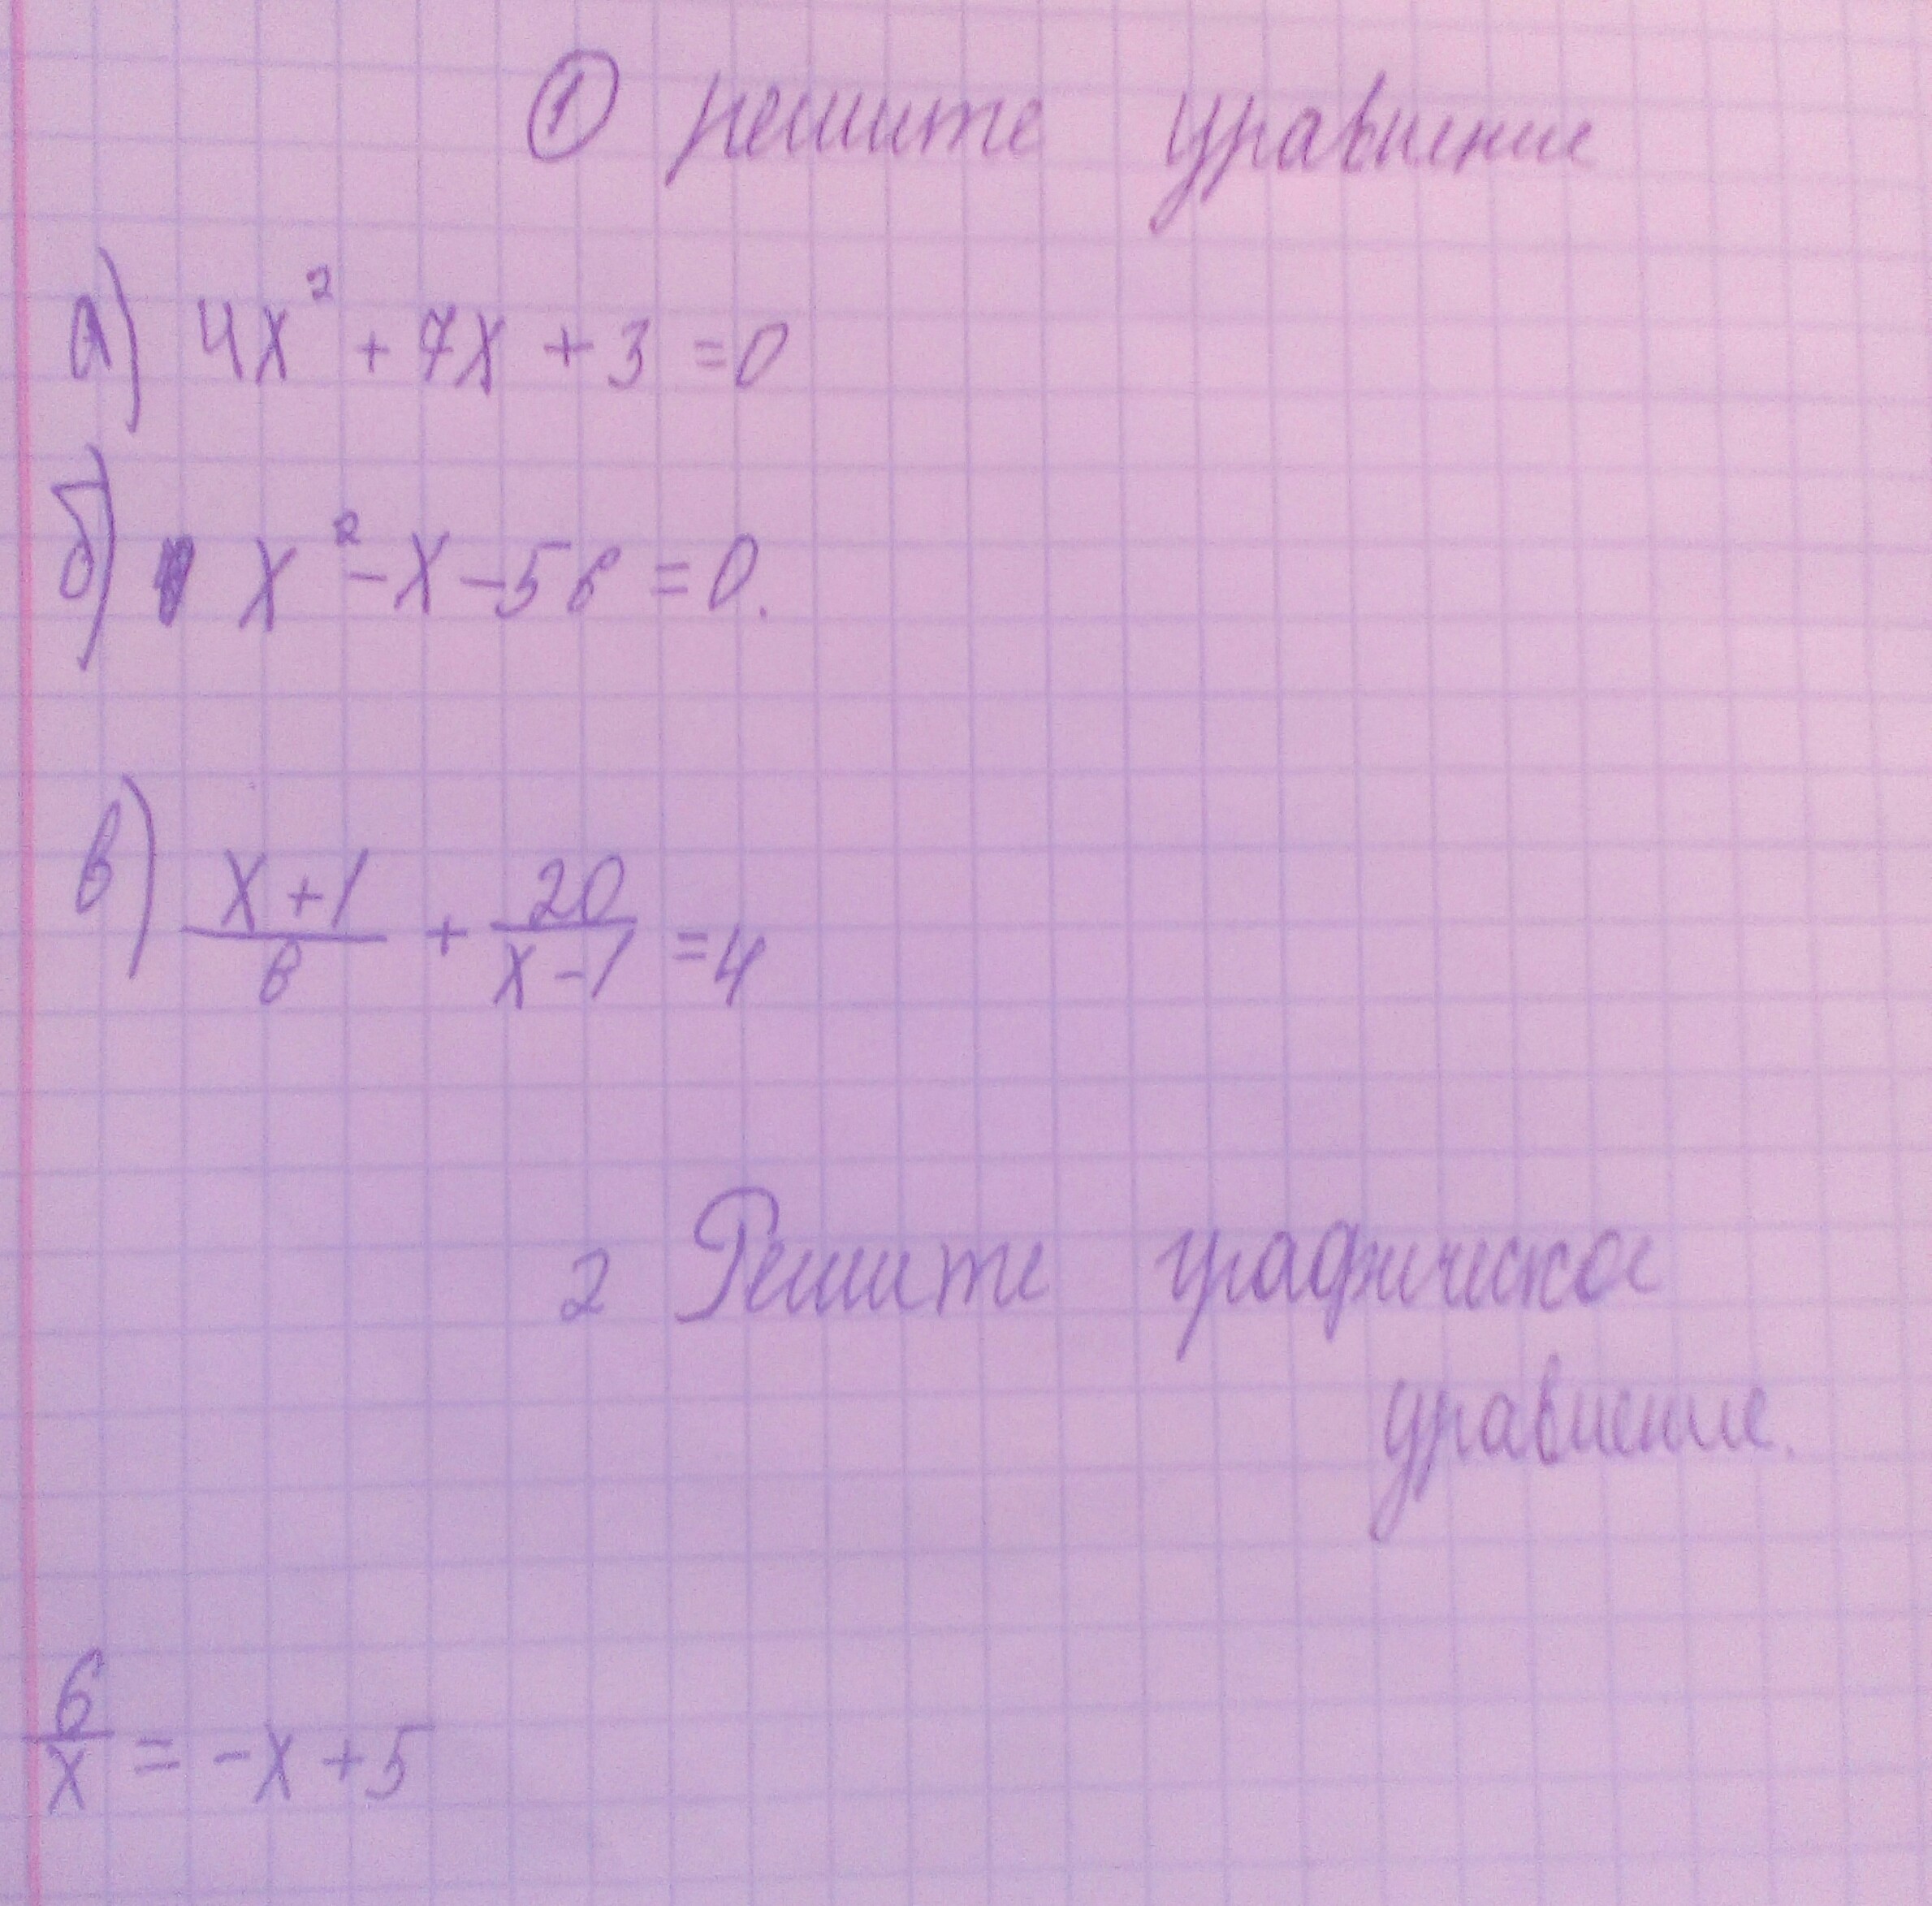 ① решите уравнение
а) 4x² + 7x + 3 = 0
б) x² - x - 56 = 0.
в) (x + 1)/6 + 20/(x - 1) = 4
2 Решите графическое
уравнение.
6/x = -x + 5